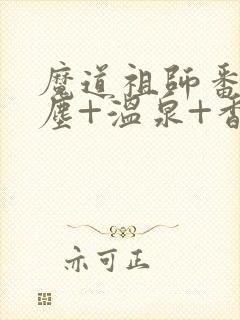 魔道祖師番
塵+溫泉+香
亦可正